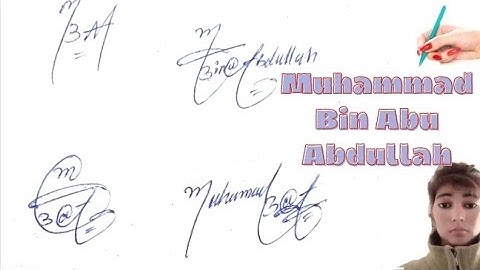 M
BAA
M
Bin@Abdullah
Muhammad
Bin Abu
Abdullah
M
B@A
Muhammad B@A